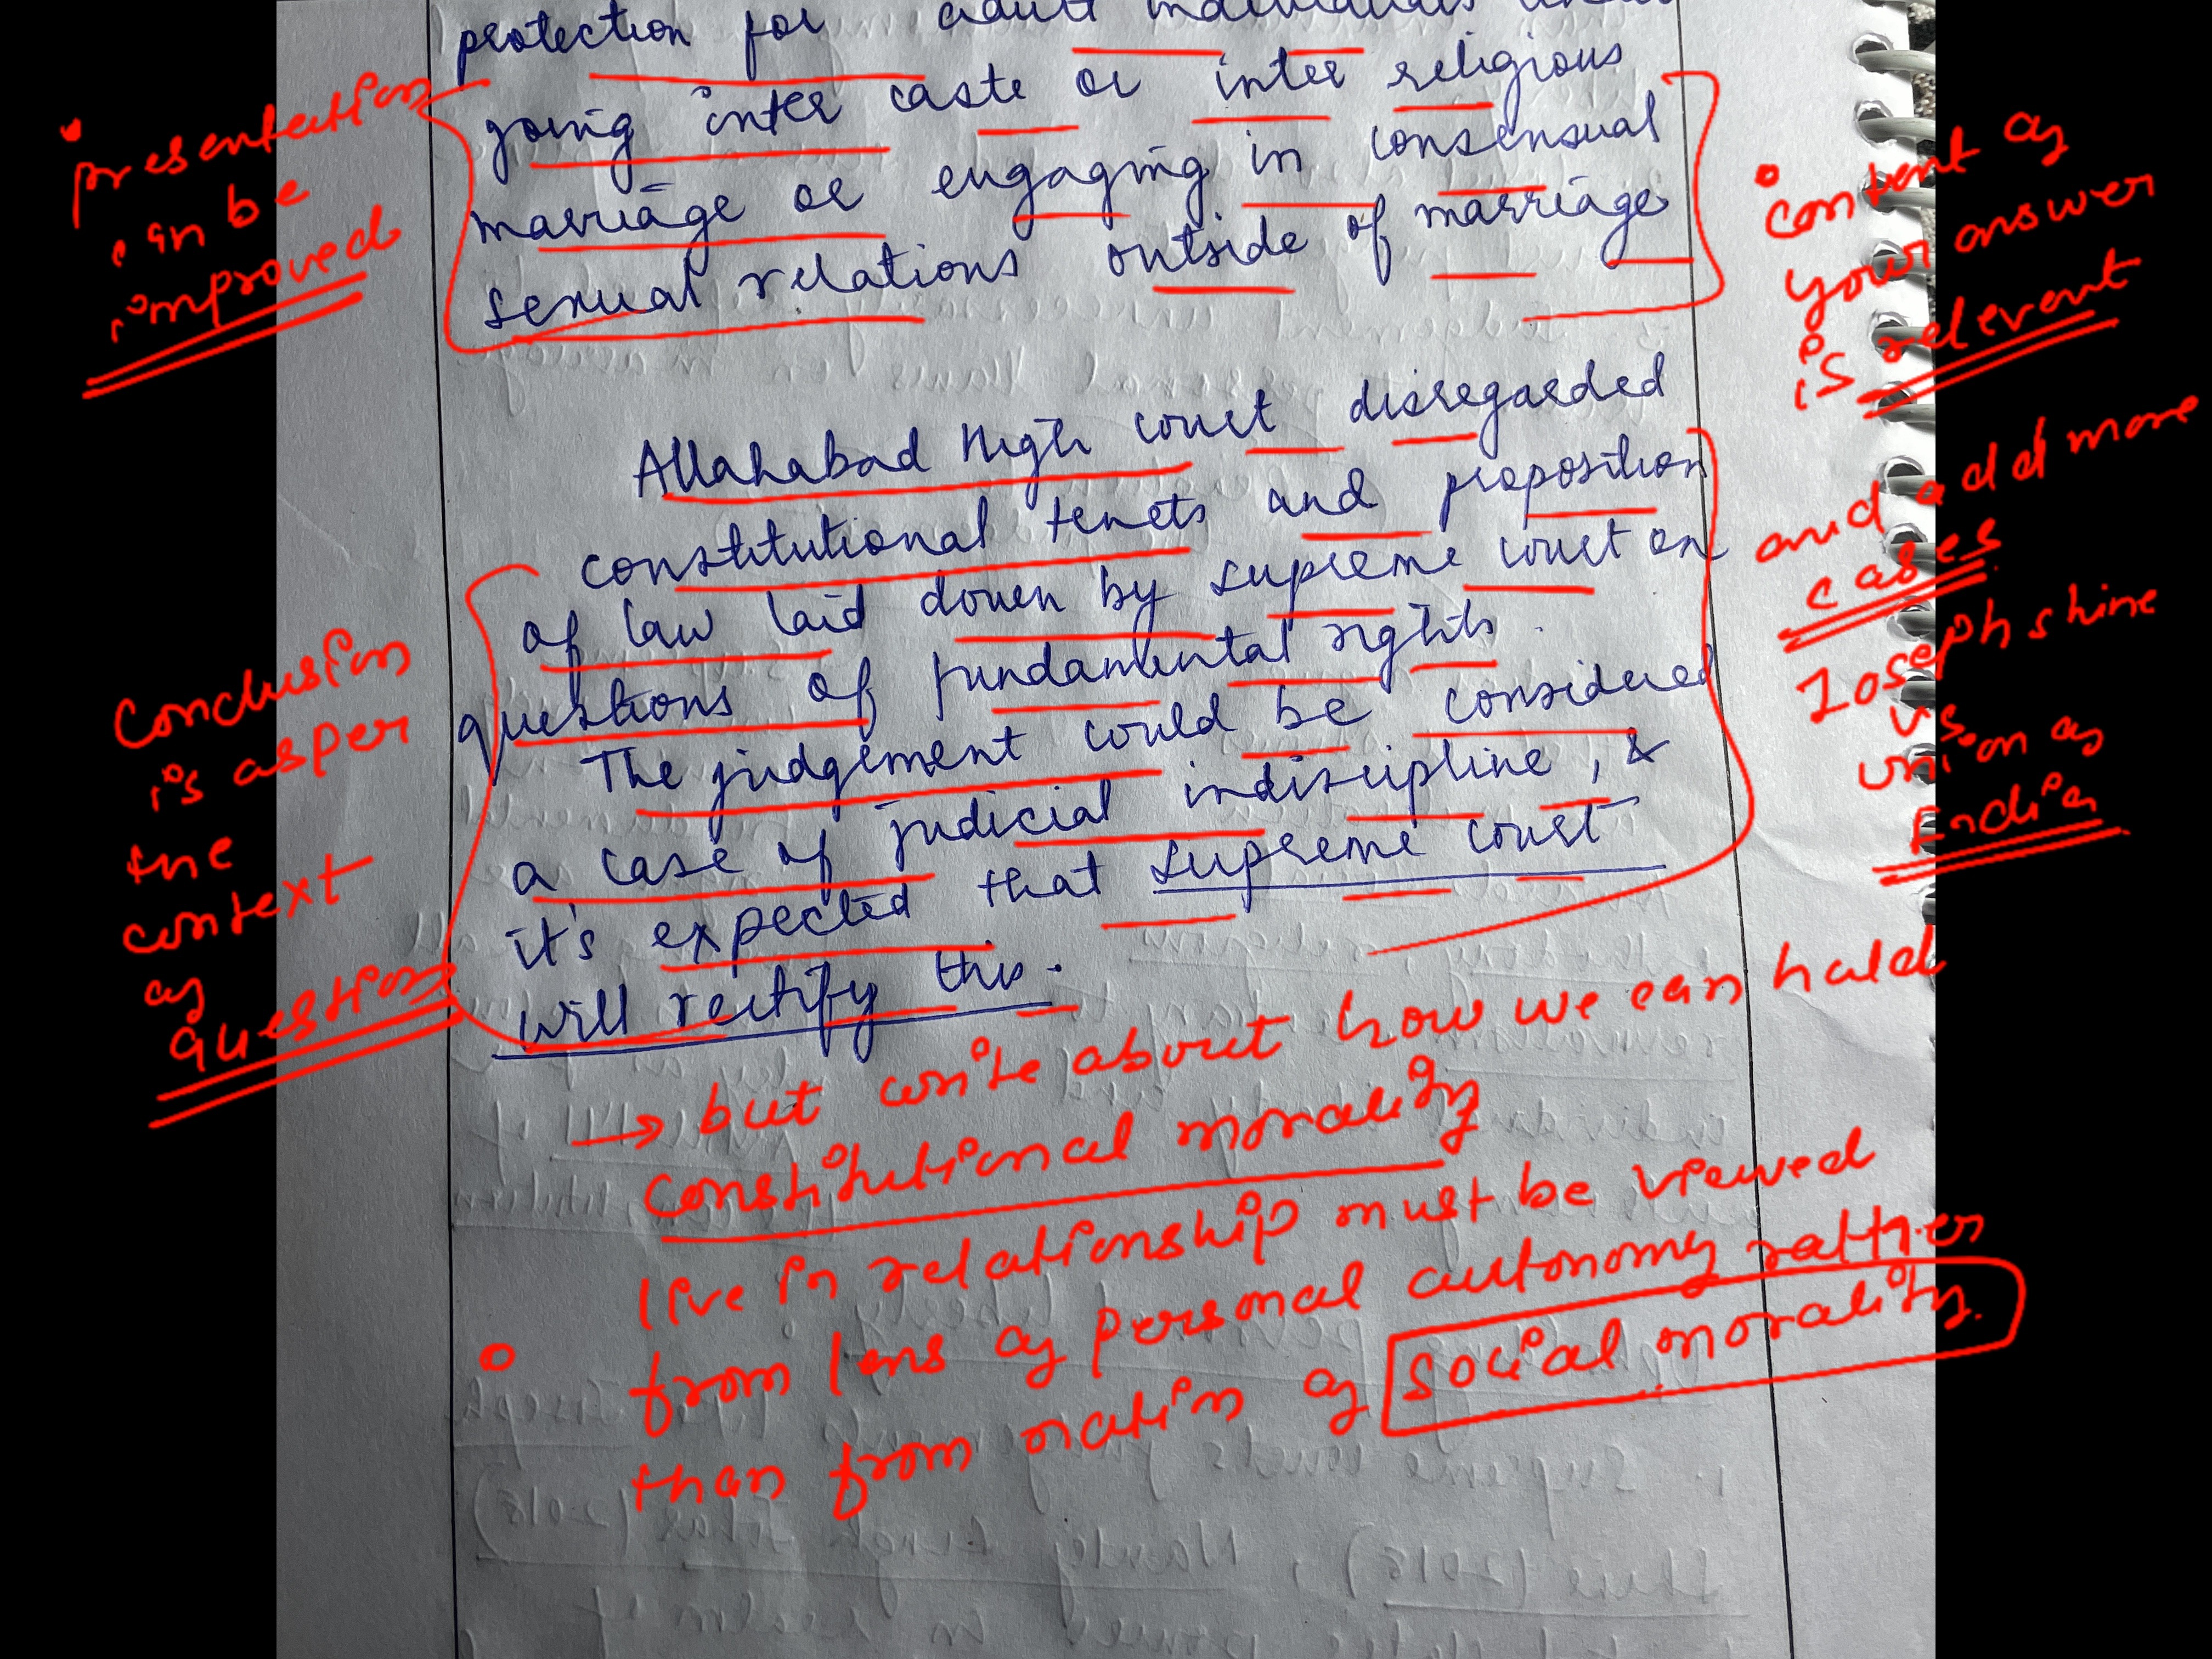 protection for adult individuals
going inter caste or inter religious
marriage or engaging in consensual
sexual relations outside of marriage
Allahabad High court disregarded
constitutional tenets and proposition
of law laid down by supreme court on
questions of fundamental rights.
The judgement could be considered
a case of judicial indiscipline, &
it's expected that supreme court
will rectify this.
presentation
can be
improved
content of
your answer
is relevant
and add more
cases
Joseph shine
vs.
union of
India
Conclusion
is as per
the
context
of
question
→ but write about how we can hold
constitutional morality
live in relationship must be viewed
from lens of personal autonomy rather
than from notion of social morality.